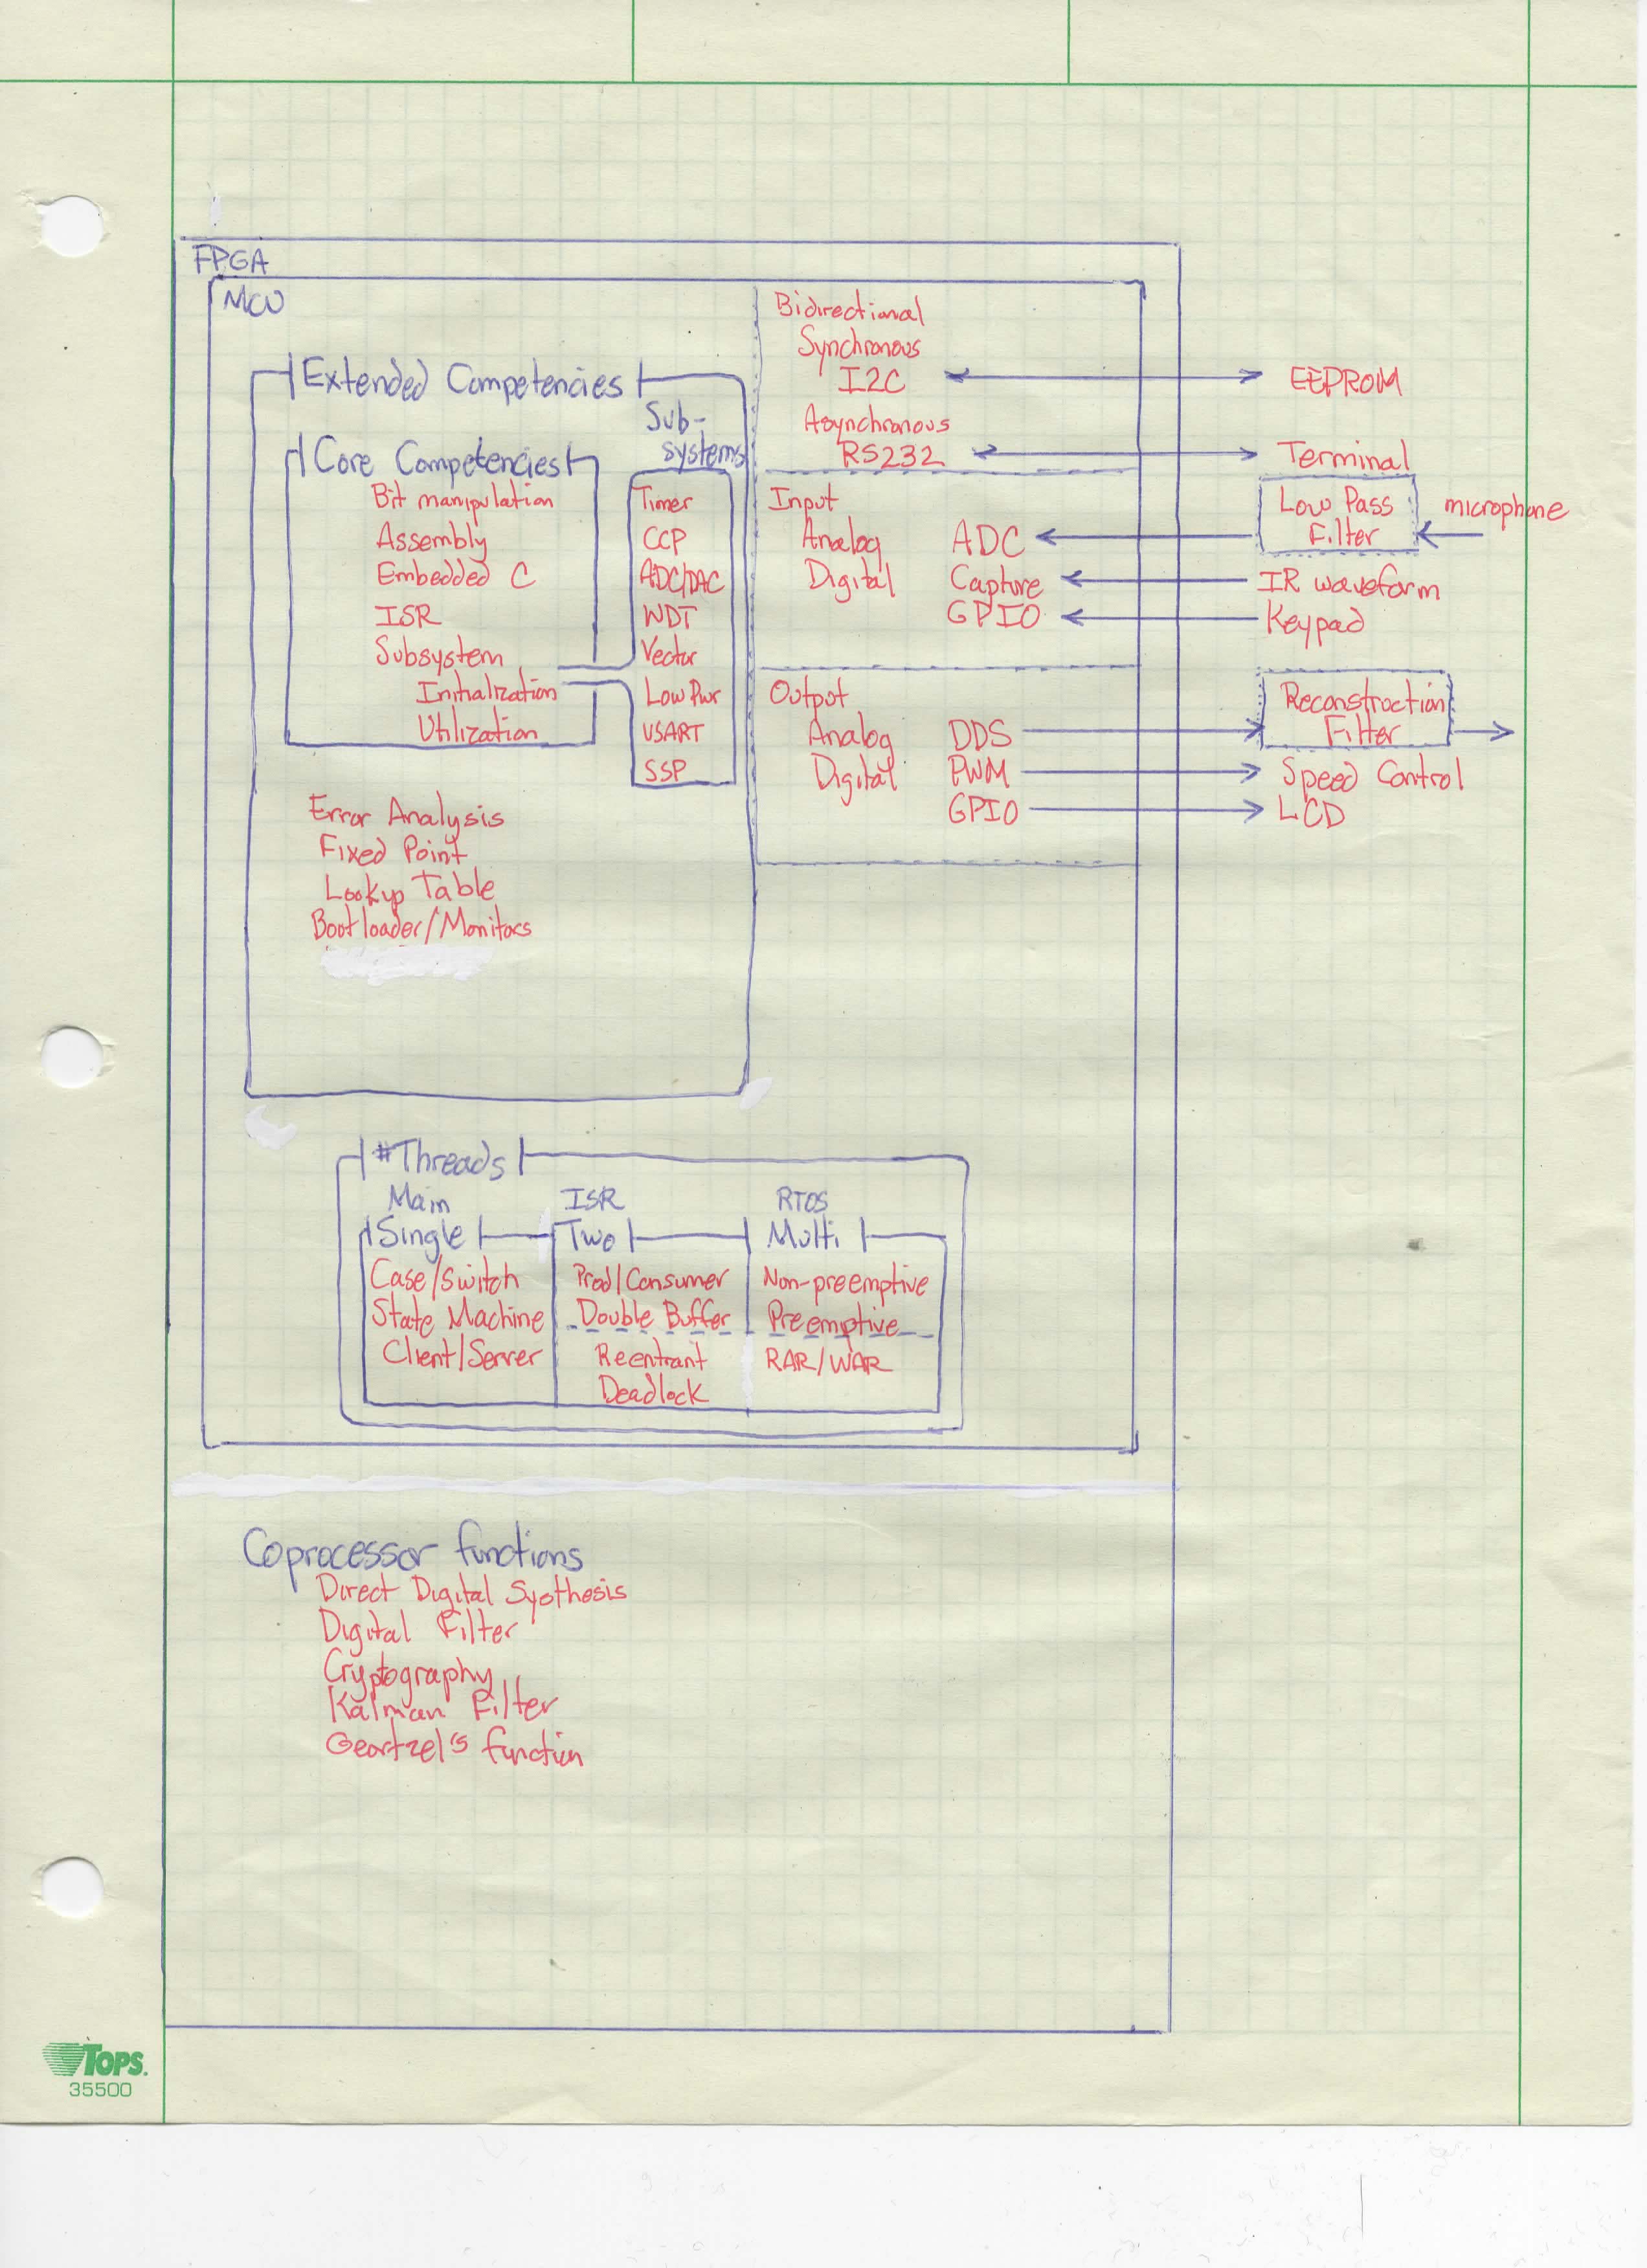 FPGA
MCU
Extended Competencies
Sub-
systems
Core Competencies
Bit manipulation
Assembly
Embedded C
ISR
Subsystem
Initialization
Utilization
Timer
CCP
ADC/DAC
WDT
Vector
Low Pwr
USART
SSP
Error Analysis
Fixed Point
Lookup Table
Bootloader/Monitors
Bidirectional
Synchronous
I2C
EEPROM
Asynchronous
RS232
Terminal
Input
Analog ADC
Low Pass
Filter
microphone
Digital Capture
IR waveform
GPIO
Keypad
Output
Analog DDS
Reconstruction
Filter
Digital PWM
Speed Control
GPIO
LCD
#Threads
Main
Single
Case/Switch
State Machine
Client/Server
ISR
Two
Prod/Consumer
Double Buffer
Reentrant
Deadlock
RTOS
Multi
Non-preemptive
Preemptive
RAR/WAR
Coprocessor functions
Direct Digital Systhesis
Digital Filter
Cryptography
Kalman Filter
Geortzel's function
TOPS.
35500